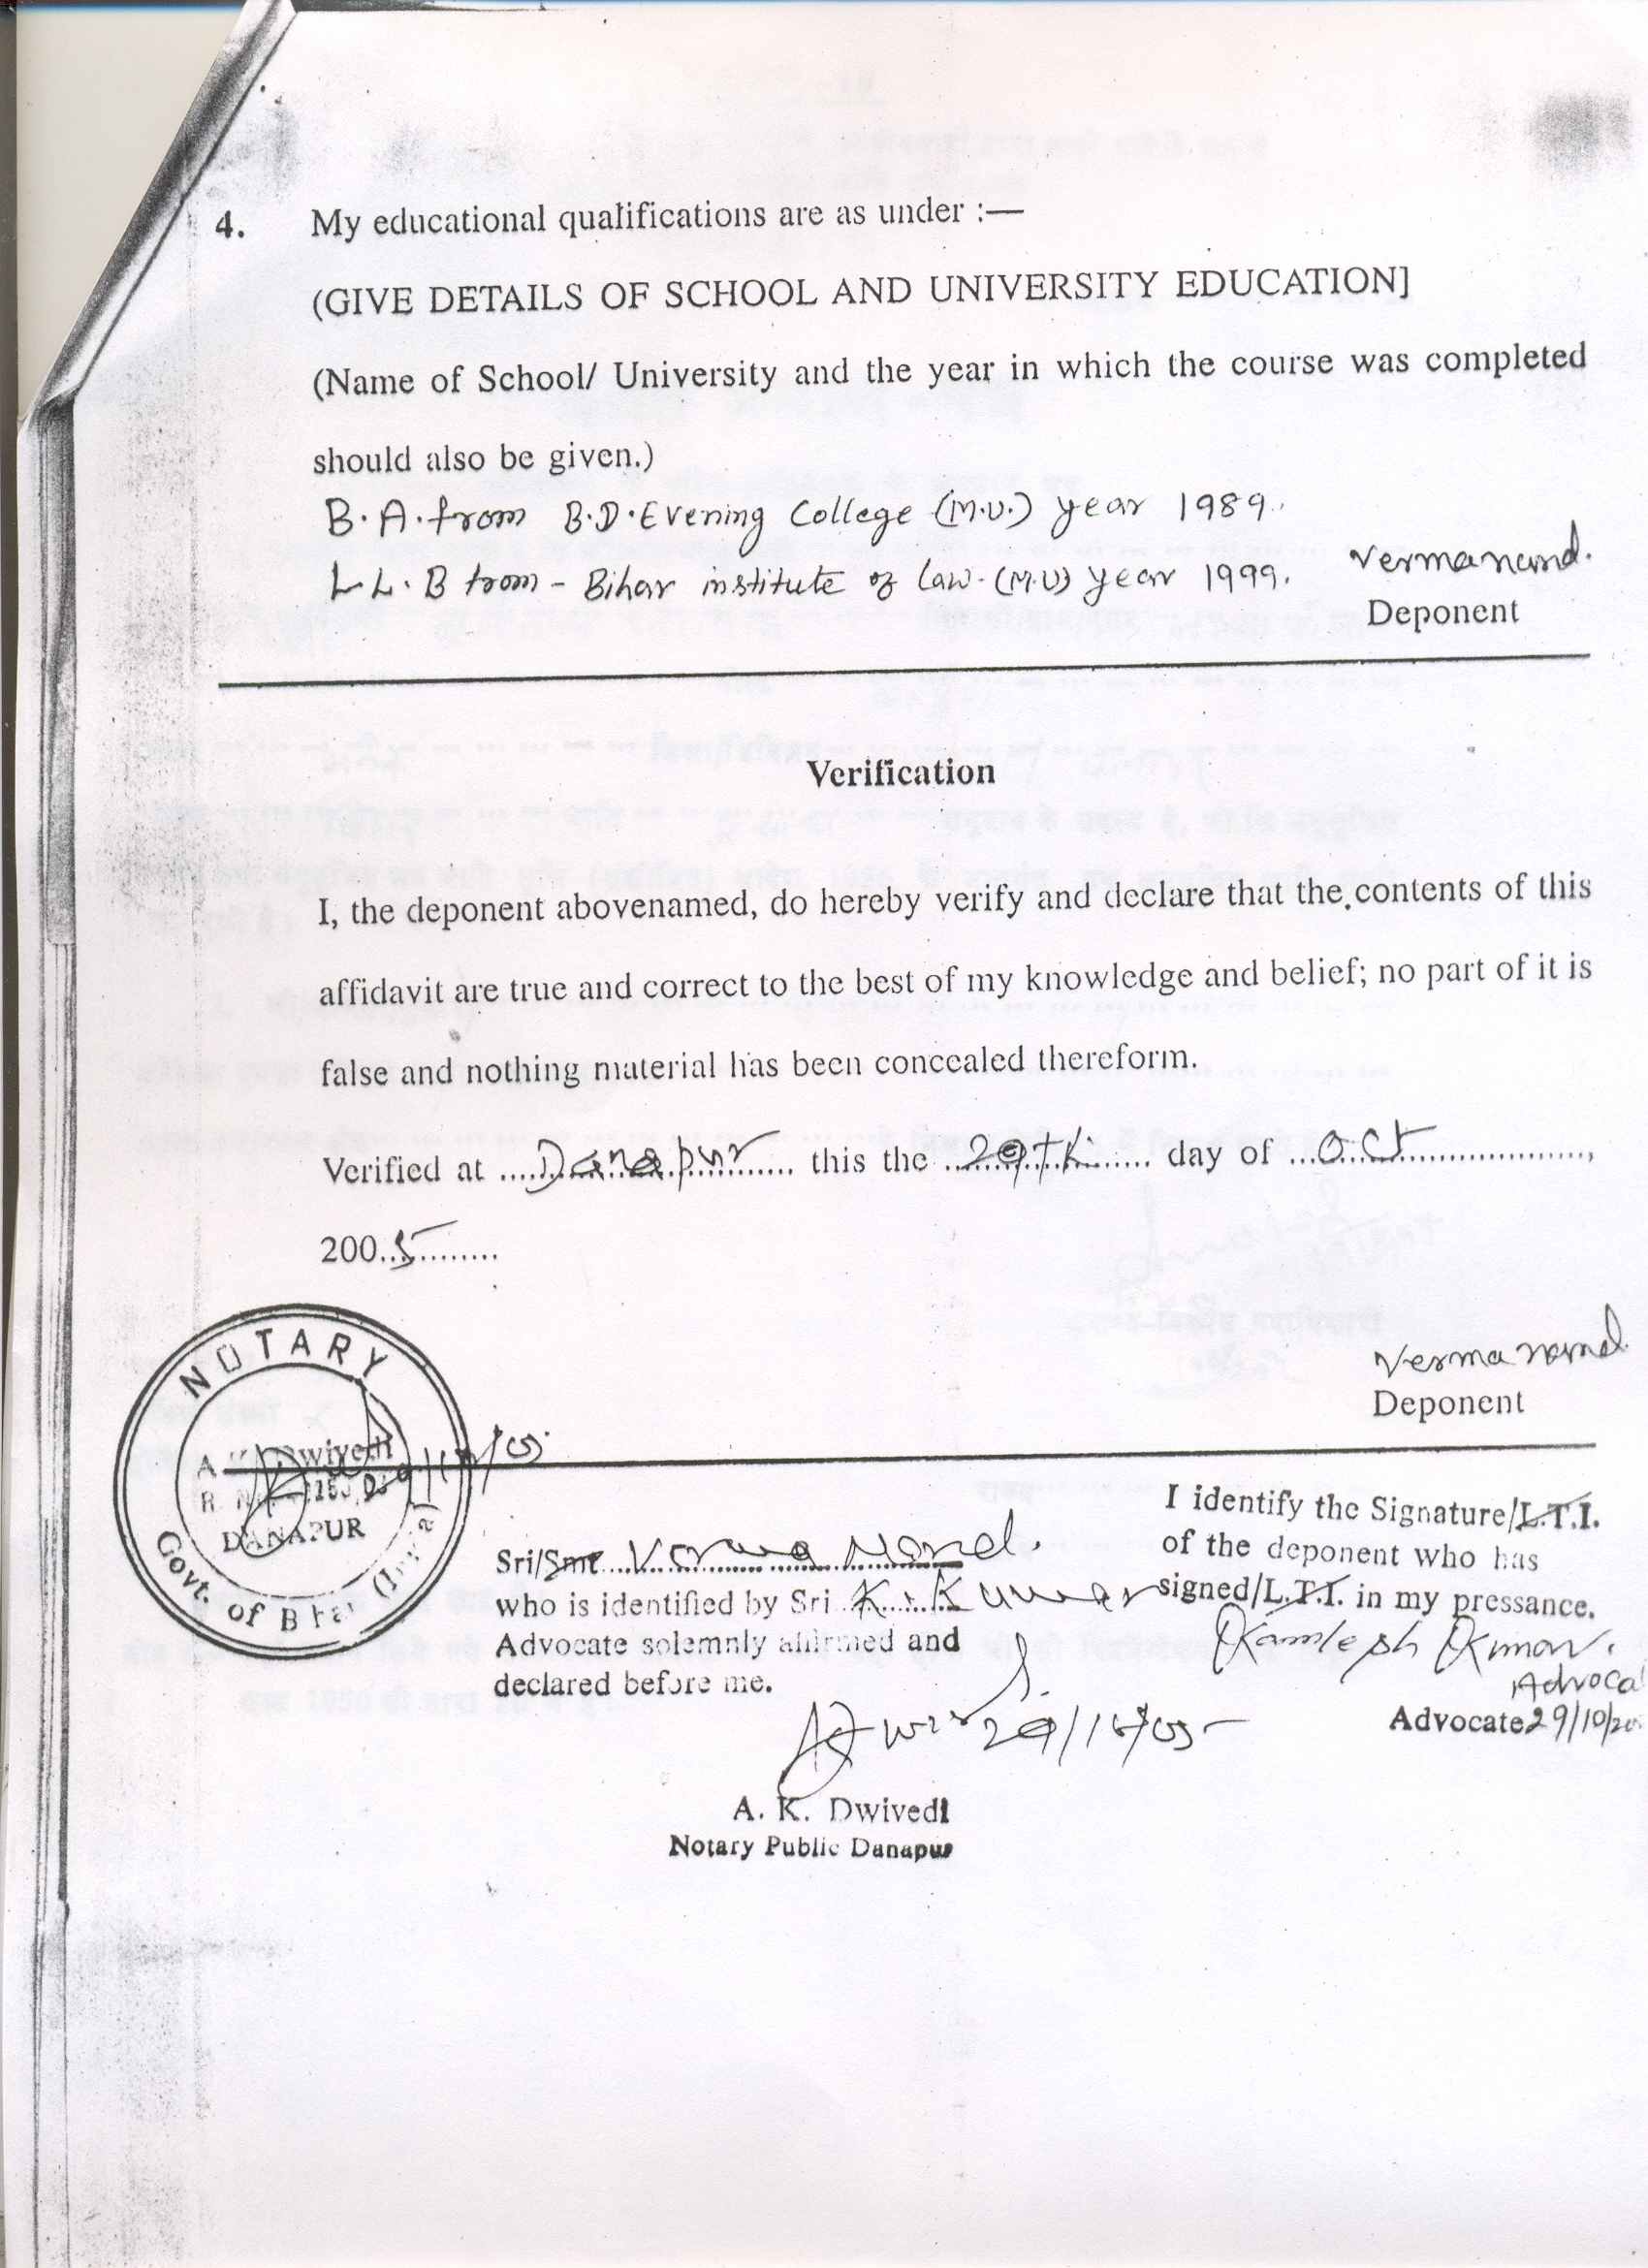 4. My educational qualifications are as under :—
(GIVE DETAILS OF SCHOOL AND UNIVERSITY EDUCATION]
(Name of School/ University and the year in which the course was completed
should also be given.)
B.A. from B.D. Evening College (M.U.) year 1989.
L L. B from - Bihar institute of Law. (M.U) year 1999.
Vermanand.
Deponent
Verification
I, the deponent abovenamed, do hereby verify and declare that the contents of this
affidavit are true and correct to the best of my knowledge and belief; no part of it is
false and nothing material has been concealed thereform.
Verified at ....Danapur.... this the ...29th... day of ...Oct...,
200..5........
Verma nand.
Deponent
NOTARY
A. K. Dwivedi
DANAPUR
Govt. of
Sri/Smt....Verma Nand.
who is identified by Sri K. Kumar
Advocate solemnly affirmed and
declared before me.
29/10/05
A. K. Dwivedi
Notary Public Danapur
I identify the Signature/L.T.I.
of the deponent who has
signed/L.T.I. in my pressance.
Kamlesh Kumar.
Advoca
Advocate 29/10/20